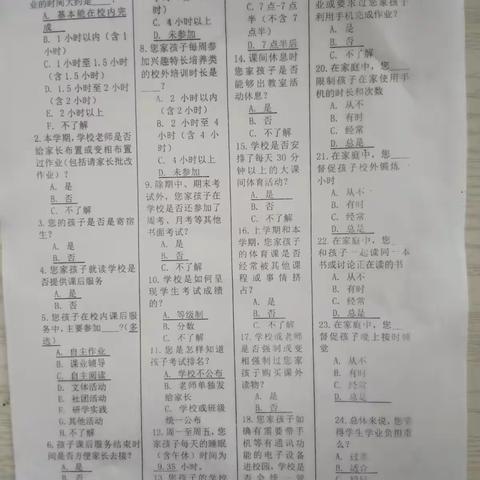 业的时间大约是
A. 基本能在校内完
成
B. 1 小时以内（含 1
小时）
C. 1 小时至 1.5 小时
（含 1.5 小时）
D. 1.5 小时至 2 小时
（含 2 小时）
E. 2 小时以上
F. 不了解
2.本学期,学校老师是否
给家长布置或变相布置
过作业(包括请家长批改
作业）？
A. 是
B. 否
C. 不了解
3.您的孩子是否是寄宿
生？
A. 是
B. 否
4.您家孩子就读学校是
否提供课后服务
A. 是
B. 否
5.您孩子在校内课后服
务中,主要参加____?(多
选)
A. 自主作业
B. 课业辅导
C. 自主阅读
D. 文体活动
E. 社团活动
F. 研学实践
G.其他活动
H.不了解
6.孩子课后服务结束时
间是否方便家长去接？
A. 是
B. 否
小时）
C. 4 小时以上
D. 未参加
8.您家孩子每周参
加兴趣特长培养类
的校外培训时长是
____？
A. 2 小时以内
（含 2 小时）
B. 2 小时至 4
小时（含 4 小
时）
C. 4 小时以上
D. 未参加
9.除期中、期末考
试外，您家孩子在
学校是否还参加了
周考、月考等其他
书面考试？
A. 是
B. 否
C. 不了解
10.学校是如何呈
现学生考试成绩
的？
A. 等级制
B. 分数
C. 不了解
11.您是怎样知道
孩子考试排名？
A. 学校不公布
B. 老师单独发
给家长
C. 学校或班级
统一公布
12.周一至周五，您
家孩子每天的睡眠
（含午休）时间为
9.35 小时.
13.您家孩子的学校
C. 7 点-7 点
半（不含 7
点半）
D. 7 点半后
14.课间休息时
您家孩子是否
能够出教室活
动休息？
A. 是
B. 否
C. 不了解
15.学校是否安
排了每天 30 分
钟以上的大课
间体育活动？
A. 是
B. 否
C. 不了解
16.上学期和本
学期，您家孩子
的体育课是否
经常被其他课
程或事情挤
占？
A. 是
B. 否
C. 不了解
17.学校或老师
是否强制或变
相强制过您家
孩子购买课外
读物？
A. 是
B. 否
18.您家孩子如
确有需要带手
机等有通讯功
能的电子设备
进校园，学校是
业或要求过您家孩子
利用手机完成作业？
A. 是
B. 否
C. 不了解
20.在家庭中，您__
限制孩子在家使用手
机的时长和次数
A. 从不
B. 有时
C. 经常
D. 总是
21.在家庭中，您__
督促孩子校外锻炼
小时
A. 从不
B. 有时
C. 经常
D. 总是
22.在家庭中，您__
和孩子一起读同一本
书或讨论正在读的书
A. 从不
B. 有时
C. 经常
D. 总是
23.在家庭中，您__
督促孩子晚上按时睡
觉
A. 从不
B. 有时
C. 经常
D. 总是
24.总体来说，您
得学生学业负担重
么？
A. 过重
B. 适合